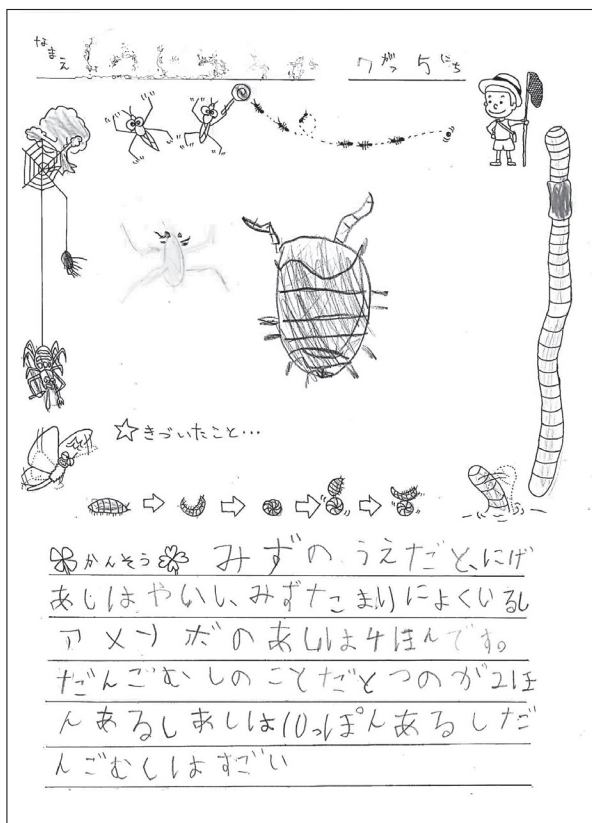 なまえ
7がつ 5にち
☆きづいたこと…
かんそう みずの うえだと、にげ
あしはやいし、みずたこまりによくいるし
アメンボのあしは4ほんです。
だんごむしのことだとつのが2ほ
んあるしあしは10っぽんあるしだ
んごむしはすごい